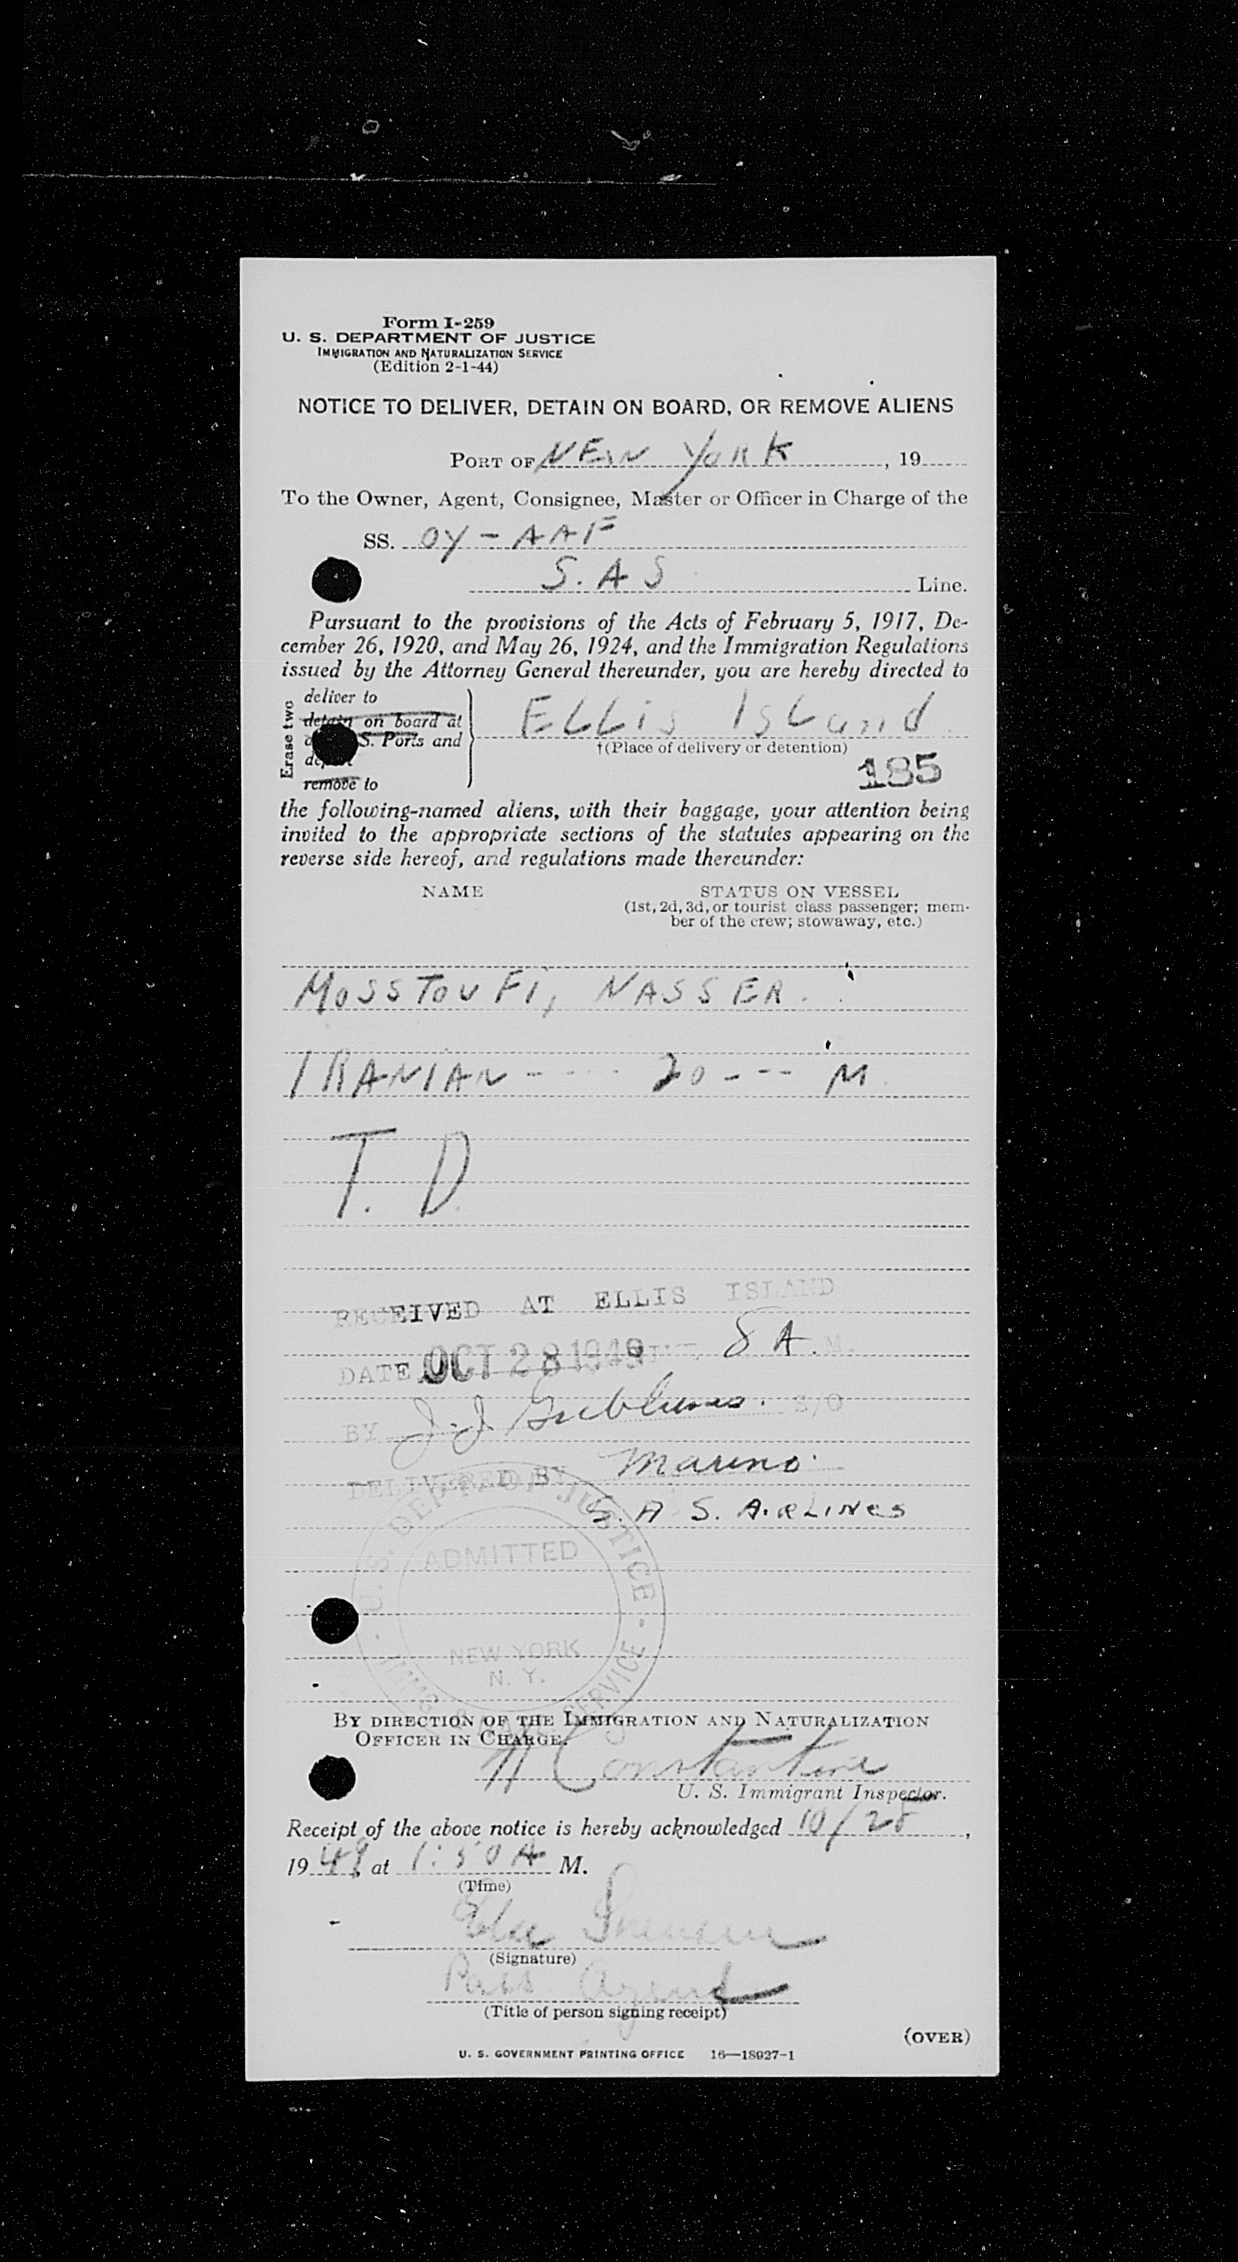 Form I-259
U. S. DEPARTMENT OF JUSTICE
IMMIGRATION AND NATURALIZATION SERVICE
(Edition 2-1-44)
NOTICE TO DELIVER, DETAIN ON BOARD, OR REMOVE ALIENS
PORT OF NEW YORK, 19
To the Owner, Agent, Consignee, Master or Officer in Charge of the
SS. OY - AAF
S.A S Line.
Pursuant to the provisions of the Acts of February 5, 1917, De-
cember 26, 1920, and May 26, 1924, and the Immigration Regulations
issued by the Attorney General thereunder, you are hereby directed to
Erase two
deliver to
detain on board at
S. Ports and
remove to
ELLis IsLand
†(Place of delivery or detention)
185
the following-named aliens, with their baggage, your attention being
invited to the appropriate sections of the statutes appearing on the
reverse side hereof, and regulations made thereunder:
NAME STATUS ON VESSEL
(1st, 2d, 3d, or tourist class passenger; mem-
ber of the crew; stowaway, etc.)
MOSSTOUFI, NASSER.
IRANIAN - - - - 20 - - - M
T. D.
RECEIVED AT ELLIS ISLAND
DATE OCT 28 1949 8 A.M.
BY J.J. S/O
DELIVERED BY Marino
S. A S. AiRLINES
U. S. DEPT. OF JUSTICE - IMMIG. & NAT. SERVICE -
ADMITTED
NEW YORK
N. Y.
BY DIRECTION OF THE IMMIGRATION AND NATURALIZATION
OFFICER IN CHARGE.
Constantine
U. S. Immigrant Inspector.
Receipt of the above notice is hereby acknowledged 10/28,
1949, at 1:50 A M.
(Time)
(Signature)
Pass Agent
(Title of person signing receipt)
(OVER)
U. S. GOVERNMENT PRINTING OFFICE 16—18927-1